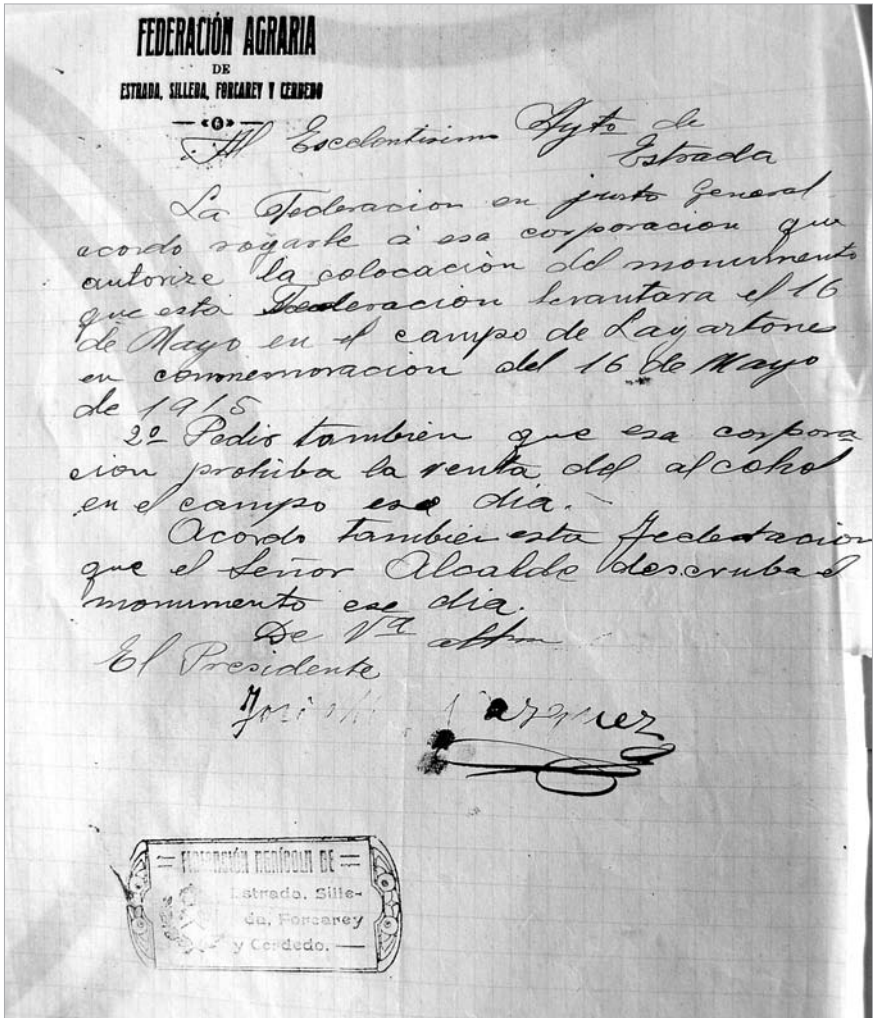 FEDERACIÓN AGRARIA
DE
ESTRADA, SILLEDA, FORCAREY Y CERDEDO
Al Escelentisimo Ayto de
Estrada
La Federacion en junta General
acordo rogarle á esa corporacion que
autorize la colocación del monumento
que esta Federacion levantara el 16
de Mayo en el campo de Lagartones
en conmemoracion del 16 de Mayo
de 1915
2º Pedir tambien que esa corpora
cion prohiba la venta del alcohol
en el campo ese dia.
Acordo tambien esta Federacion
que el Señor Alcalde descruba el
monumento ese dia.
De Vª attm
El Presidente
José Vazquez
FEDERACIÓN AGRÍCOLA DE
Estrada, Sille-
da, Forcarey
y Cerdedo.